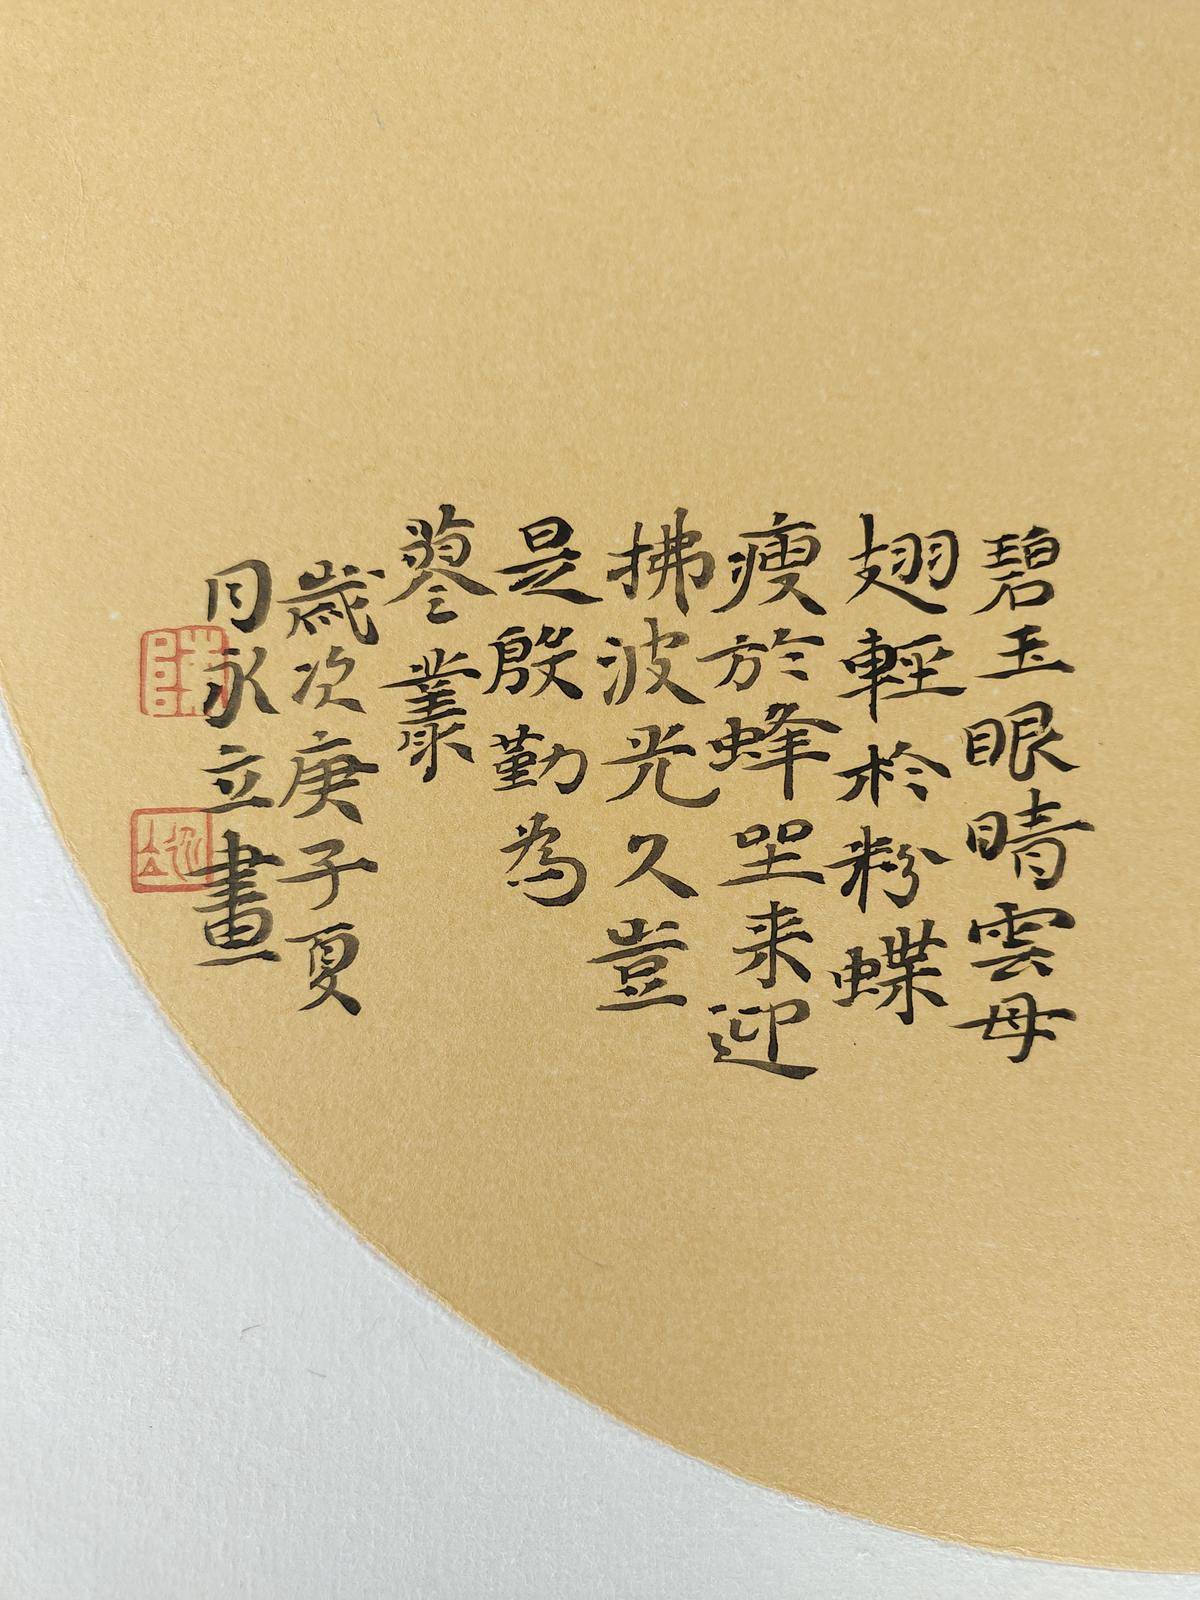 碧玉眼晴雲母
翅輕於粉蝶
瘦於蜂坐来迎
拂波光久豈
是殷勤為
蓼叢
歲次庚子夏
月永立畫